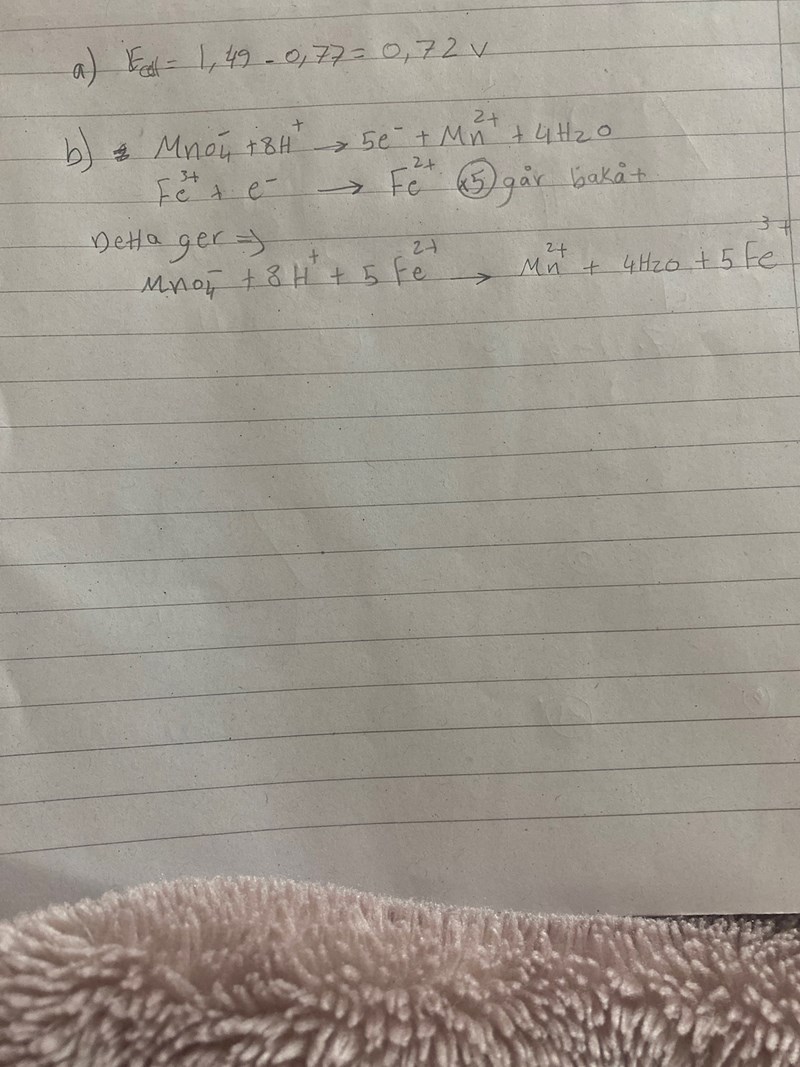 a) Ecell = 1,49 - 0,77 = 0,72 V
b) MnO₄⁻ + 8H⁺ → 5e⁻ + Mn²⁺ + 4H₂O
Fe³⁺ + e⁻ → Fe²⁺ x5 går bakåt
Detta ger ⇒
MnO₄⁻ + 8H⁺ + 5Fe²⁺ → Mn²⁺ + 4H₂O + 5Fe³⁺